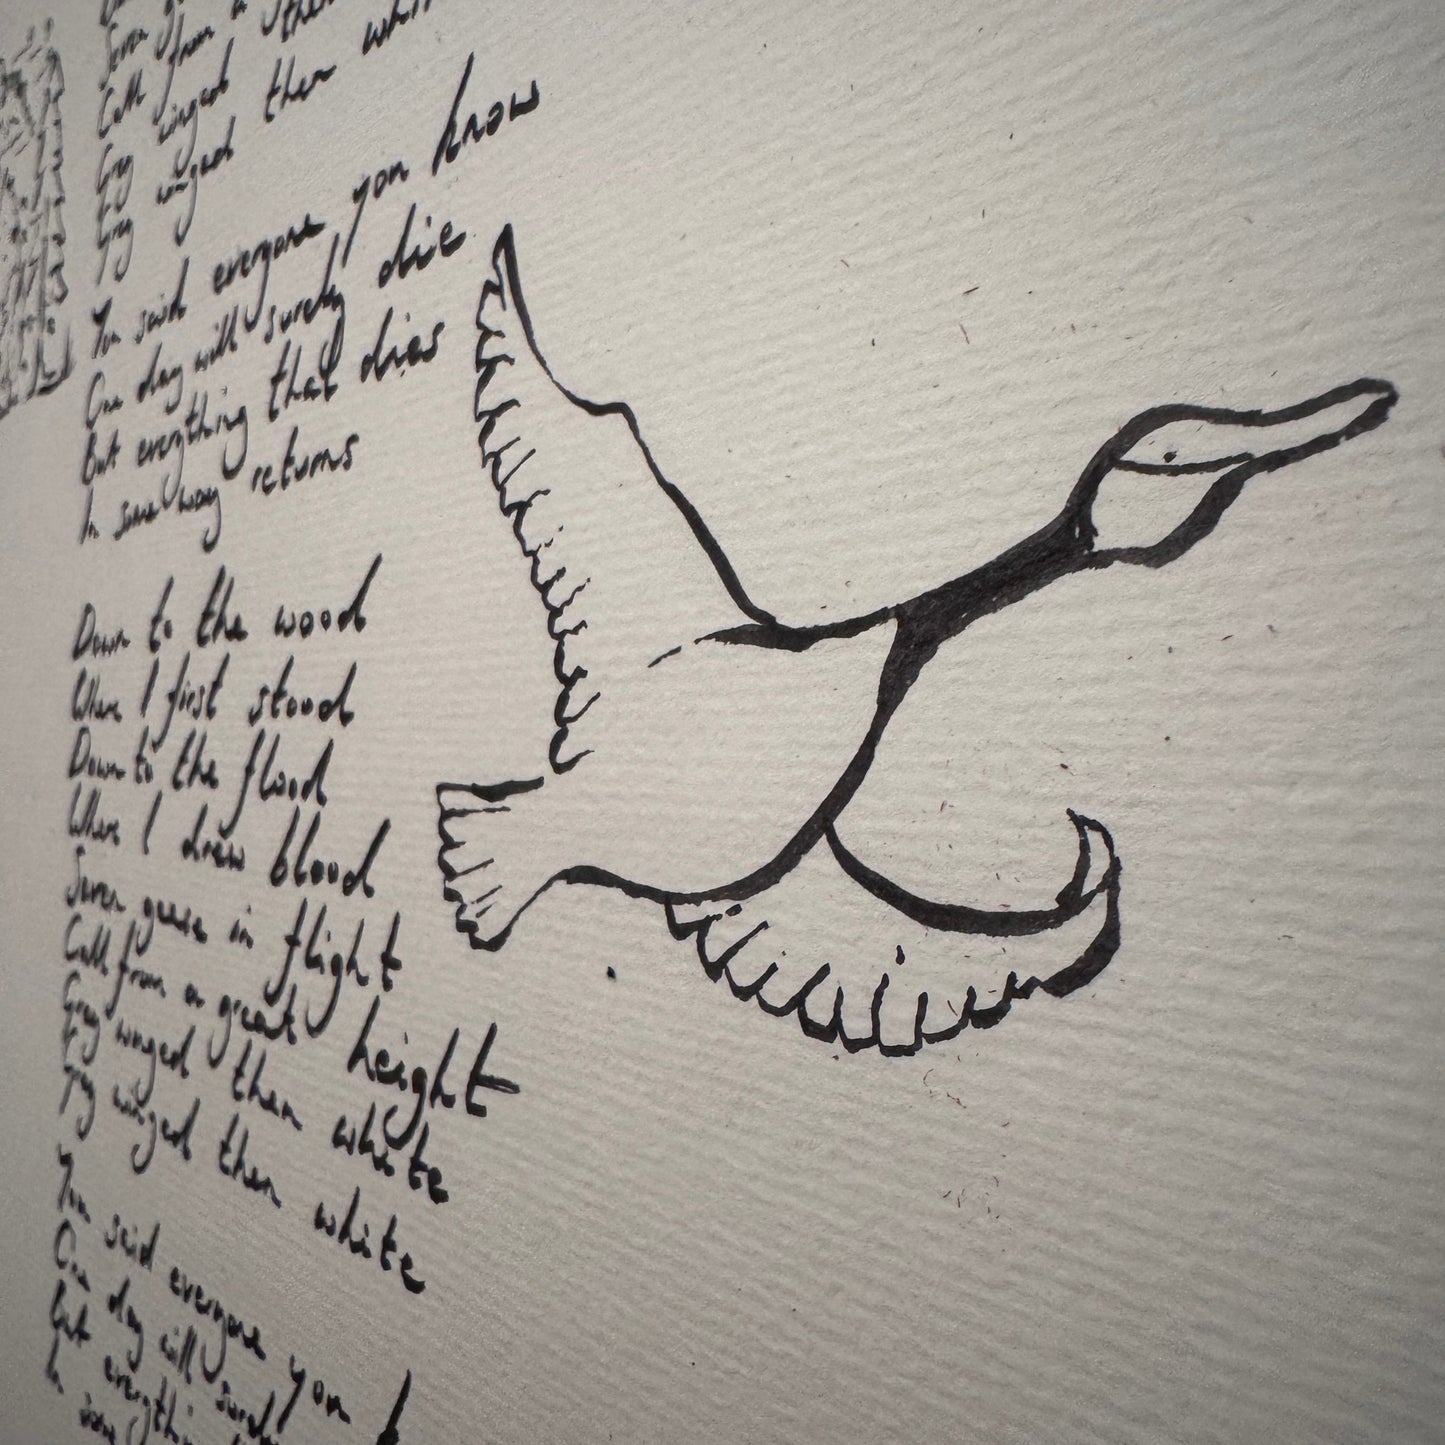 Seven
Call from a
Grey winged then whi
Grey winged
You said everyone you know
One day will surely die
But everything that dies
In some way returns
Down to the wood
Where I first stood
Down to the flood
Where I drew blood
Seven geese in flight
Call from a great height
Grey winged then white
Grey winged then white
You said everyone you k
One day will surely
But everythin
In some